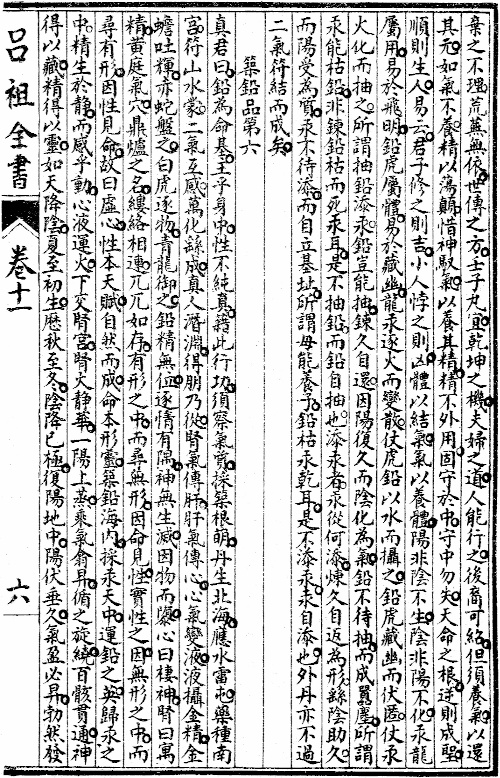 棄之不理荒蕪無依世傳之方士子丸宜乾坤之機夫婦之道人能行之後裔可絕但須養氣以還
其元如氣不養精以蕩顛惜神堅氣以養其精精不外用固守於中守中勿失天命之根逆則成聖
順則生人易云君子修之則吉小人悖之則凶體以結氣氣以養體陽非陰不生陰非陽不化汞龍
屬用易於飛明鉛虎屬體易於藏幽龍汞逐火而變散仗虎鉛以水而攝之鉛虎藏幽而伏匿仗汞
火化而抽之所謂抽鉛添汞鉛豈能抽鍊久自還因陽復久而陰化為氣鉛不待抽而成野塵所謂
汞能枯鉛非鍊鉛枯而死汞耳是不抽鉛而鉛自抽也添汞者汞從何添煉久自返為形繇陰助久
而陽受為質汞不待添而自立基址所謂母能養子鉛枯汞乾耳是不添汞汞自添也外丹亦不過
二氣符結而成矣
築鉛品第六
真君曰鉛為命基王乎身中性不純真藉此行功須察氣質採築根萌丹生北海應水雷屯藥種南
宮符山水蒙二氣互感萬化繇成真人潛淵得朋乃從腎氣傳肝肝氣傳心心氣變液液攝金精金
蟾吐輝赤蛇盤之白虎逐物青龍御之鉛精無位逐情有隔神無生滅因物而障心曰棲神腎曰寓
精黃庭氣穴鼎爐之名縷絡相連兀兀如存有形之中而尋無形因命見性實性之因無形之中而
尋有形因性見命故曰虛心性本天賦自然而成命本形靈築鉛海內採汞天中運鉛之英歸汞之
中精生於靜而感乎動心液運火下交腎宮腎天靜華一陽上蒸乘氣翕耳循之旋繞百骸貫通神
得以藏精得以靈如天降陰夏至初生歷秋至冬陰降已極復陽地中陽伏垂久氣盈必昇勃然發
呂祖全書
卷十一
六